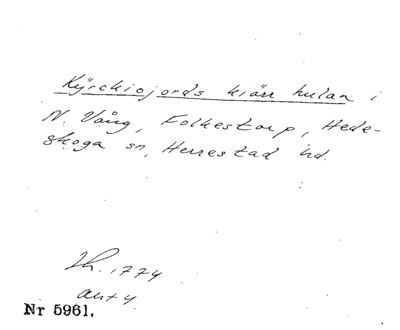 Kÿrckiojords kiärr hulan i
N. Vång, Folkestorp, Hede-
skoga sn, Herrestad hd.
Lh. 1774
akt 4
Nr 5961.